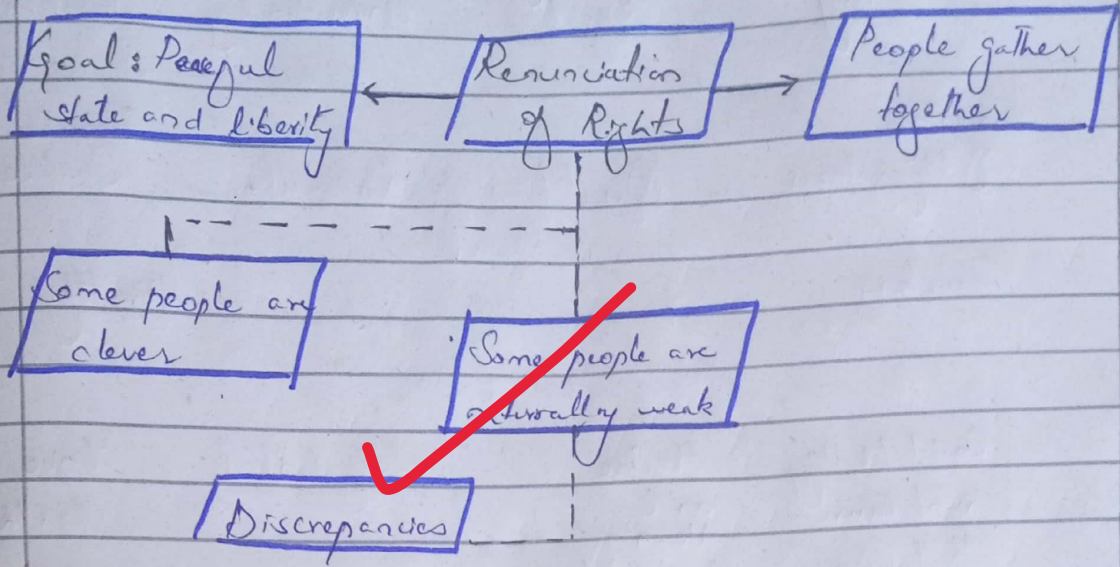 Goal: Peaceful
state and liberity
Renunciation
of Rights
People gather
together
Some people are
clever
Some people are
weak
Discrepancies